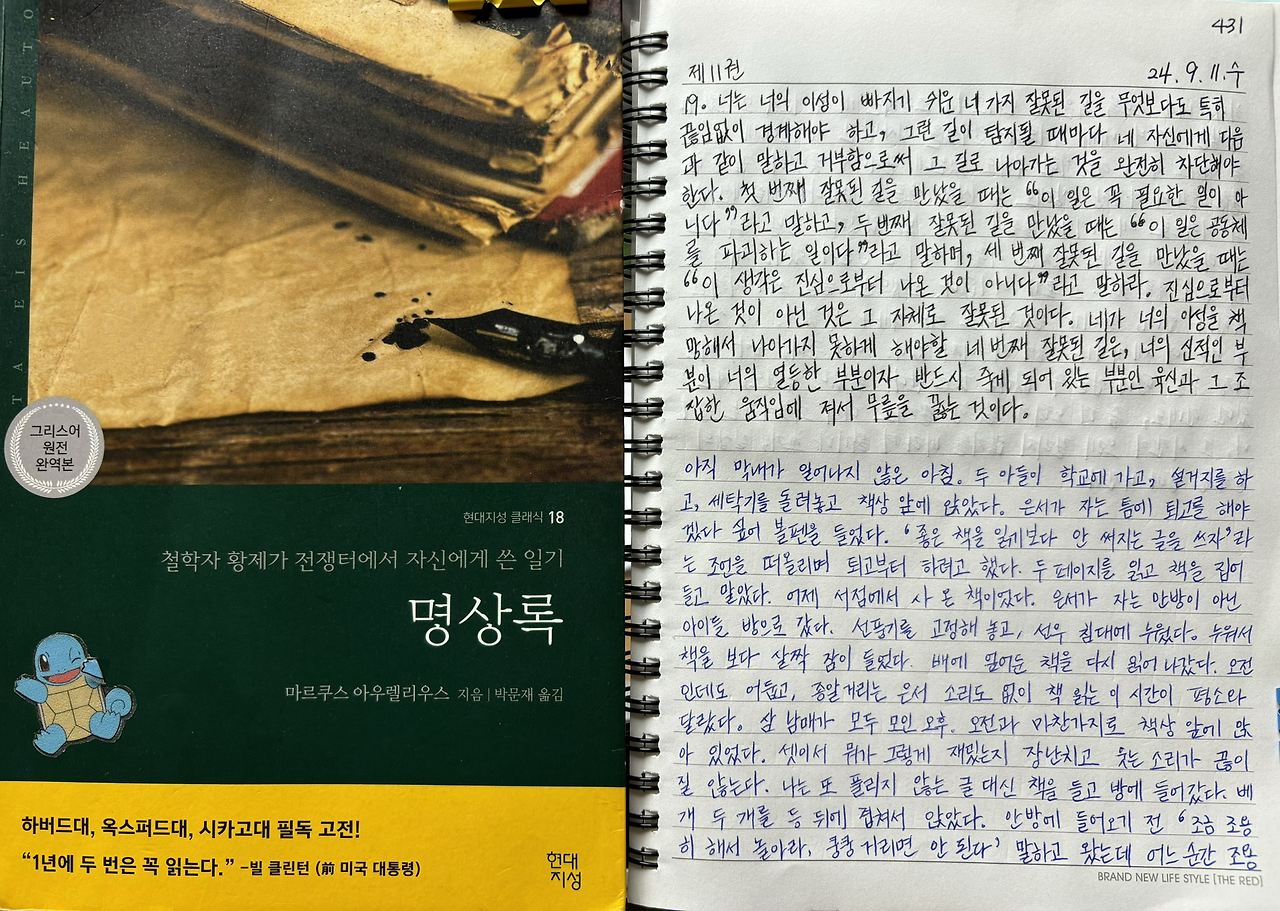 TA EIS HEAUTO
그리스어
원전
완역본
현대지성 클래식 18
철학자 황제가 전쟁터에서 자신에게 쓴 일기
명상록
마르쿠스 아우렐리우스 지음 | 박문재 옮김
하버드대, 옥스퍼드대, 시카고대 필독 고전!
“1년에 두 번은 꼭 읽는다.” –빌 클린턴 (前 미국 대통령)
현대
지성
431
제11권 24. 9. 11. 수
19. 너는 너의 이성이 빠지기 쉬운 네 가지 잘못된 길을 무엇보다도 특히
끊임없이 경계해야 하고, 그런 길이 탐지될 때마다 네 자신에게 다음
과 같이 말하고 거부함으로써 그 길로 나아가는 것을 완전히 차단해야
한다. 첫 번째 잘못된 길을 만났을 때는 “이 일은 꼭 필요한 일이 아
니다”라고 말하고, 두 번째 잘못된 길을 만났을 때는 “이 일은 공동체
를 파괴하는 일이다”라고 말하며, 세 번째 잘못된 길을 만났을 때는
“이 생각은 진심으로부터 나온 것이 아니다”라고 말하라. 진심으로부터
나온 것이 아닌 것은 그 자체로 잘못된 것이다. 네가 너의 이성을 책
망해서 나아가지 못하게 해야할 네 번째 잘못된 길은, 너의 신적인 부
분이 너의 열등한 부분이자 반드시 죽게 되어 있는 부분인 육신과 그 조
잡한 움직임에 져서 무릎을 꿇는 것이다.
아직 막내가 일어나지 않은 아침. 두 아들이 학교에 가고, 설거지를 하
고, 세탁기를 돌려놓고 책상 앞에 앉았다. 은서가 자는 틈에 퇴고를 해야
겠다 싶어 볼펜을 들었다. ‘좋은 책을 읽기보다 안 써지는 글을 쓰자’라
는 조언을 떠올리며 퇴고부터 하려고 했다. 두 페이지를 읽고 책을 집어
들고 말았다. 어제 서점에서 사 온 책이었다. 은서가 자는 안방이 아닌
아이들 방으로 갔다. 선풍기를 고정해 놓고, 선우 침대에 누웠다. 누워서
책을 보다 살짝 잠이 들었다. 배에 엎어둔 책을 다시 읽어 나갔다. 오전
인데도 어둡고, 종알거리는 은서 소리도 없이 책 읽는 이 시간이 평소와
달랐다. 삼 남매가 모두 모인 오후. 오전과 마찬가지로 책상 앞에 앉
아 있었다. 셋이서 뭐가 그렇게 재밌는지 장난치고 웃는 소리가 끊이
질 않는다. 나는 또 풀리지 않는 글 대신 책을 들고 방에 들어갔다. 베
개 두 개를 등 뒤에 겹쳐서 앉았다. 안방에 들어오기 전 ‘조금 조용
히 해서 놀아라. 쿵쿵거리면 안 된다’ 말하고 왔는데 어느 순간 조용
BRAND NEW LIFE STYLE [THE RED]